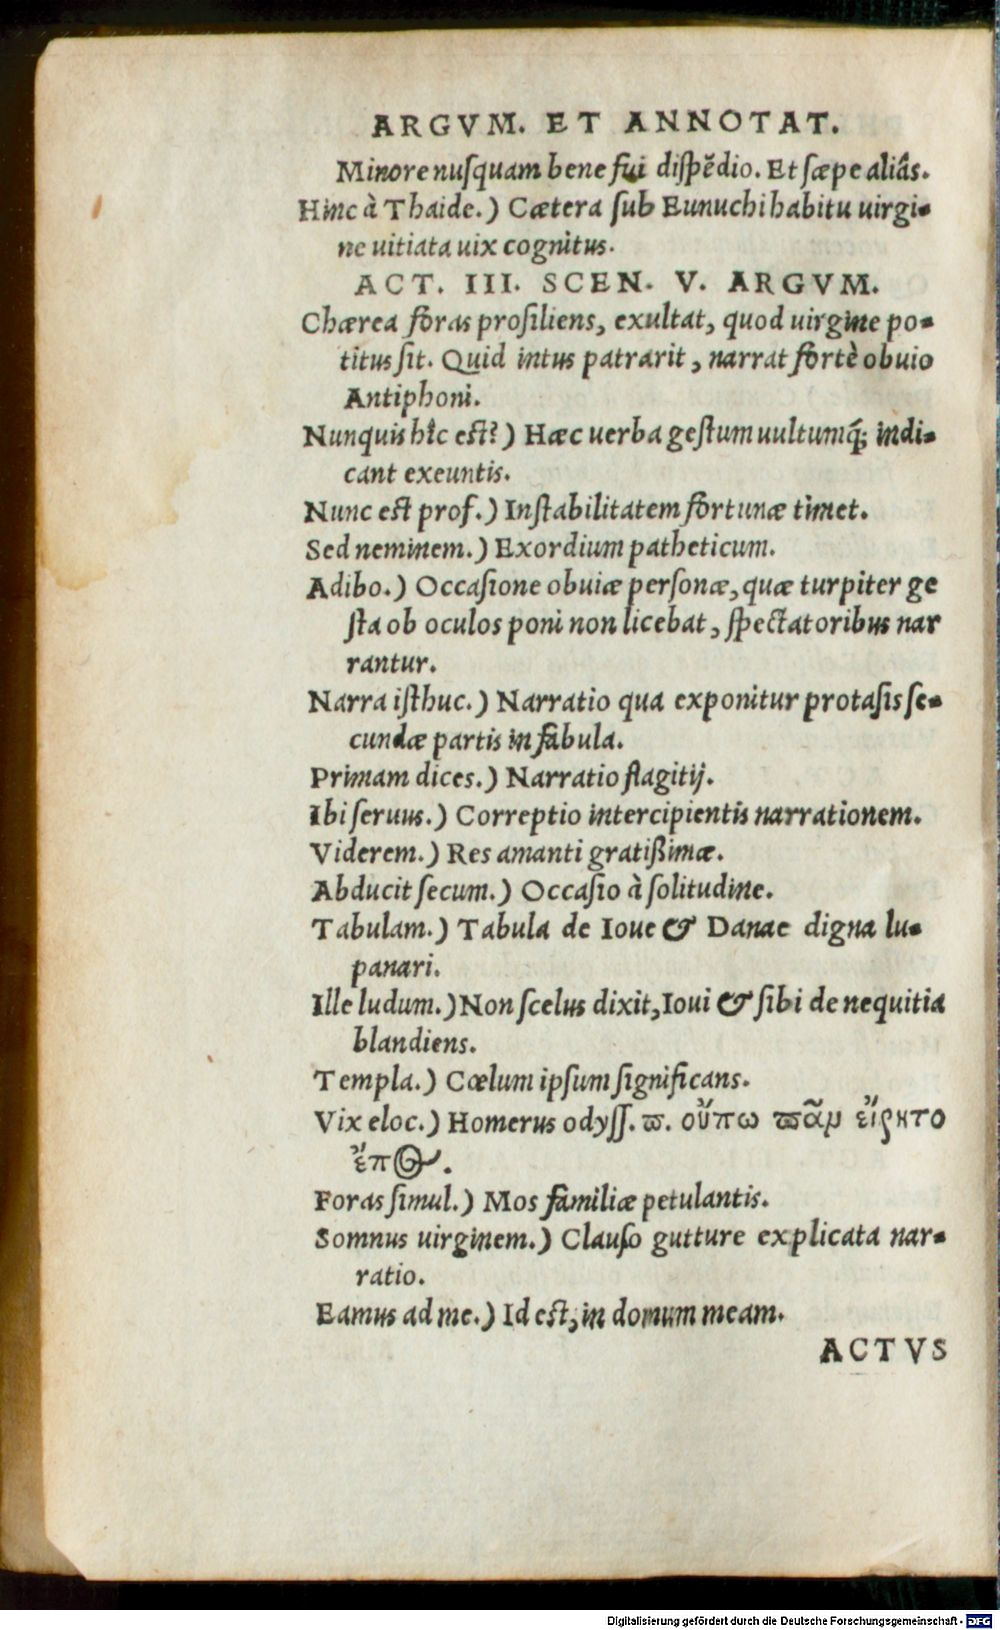 ARGVM. ET ANNOTAT.
Minore nuſquam bene fui diſpẽdio. Et ſæpe aliâs.
Hinc à Thaide.) Cætera ſub Eunuchi habitu uirgi-
ne uitiata uix cognitus.
ACT. III. SCEN. V. ARGVM.
Chærea foras proſiliens, exultat, quod uirgine po-
titus ſit. Quid intus patrarit, narrat fortè obuio
Antiphoni.
Nunquis hîc eſt?) Hæc uerba geſtum uultumq́; indi-
cant exeuntis.
Nunc eſt prof.) Inſtabilitatem fortunæ timet.
Sed neminem.) Exordium patheticum.
Adibo.) Occaſione obuiæ perſonæ, quæ turpiter ge
ſta ob oculos poni non licebat, ſpectatoribus nar
rantur.
Narra iſthuc.) Narratio qua exponitur protaſis ſe-
cundæ partis in fabula.
Primam dices.) Narratio flagitij.
Ibi ſeruus.) Correptio intercipientis narrationem.
Viderem.) Res amanti gratißimæ.
Abducit ſecum.) Occaſio à ſolitudine.
Tabulam.) Tabula de Ioue & Danae digna lu-
panari.
Ille ludum.) Non ſcelus dixit, Ioui & ſibi de nequitia
blandiens.
Templa.) Cœlum ipſum ſignificans.
Vix eloc.) Homerus odyſſ. ϖ. οὔπω ϖᾶμ εἴρητο
ἔπος.
Foras ſimul.) Mos familiæ petulantis.
Somnus uirginem.) Clauſo gutture explicata nar-
ratio.
Eamus ad me.) Id eſt, in domum meam.
ACTVS
Digitalisierung gefördert durch die Deutsche Forschungsgemeinschaft - DFG